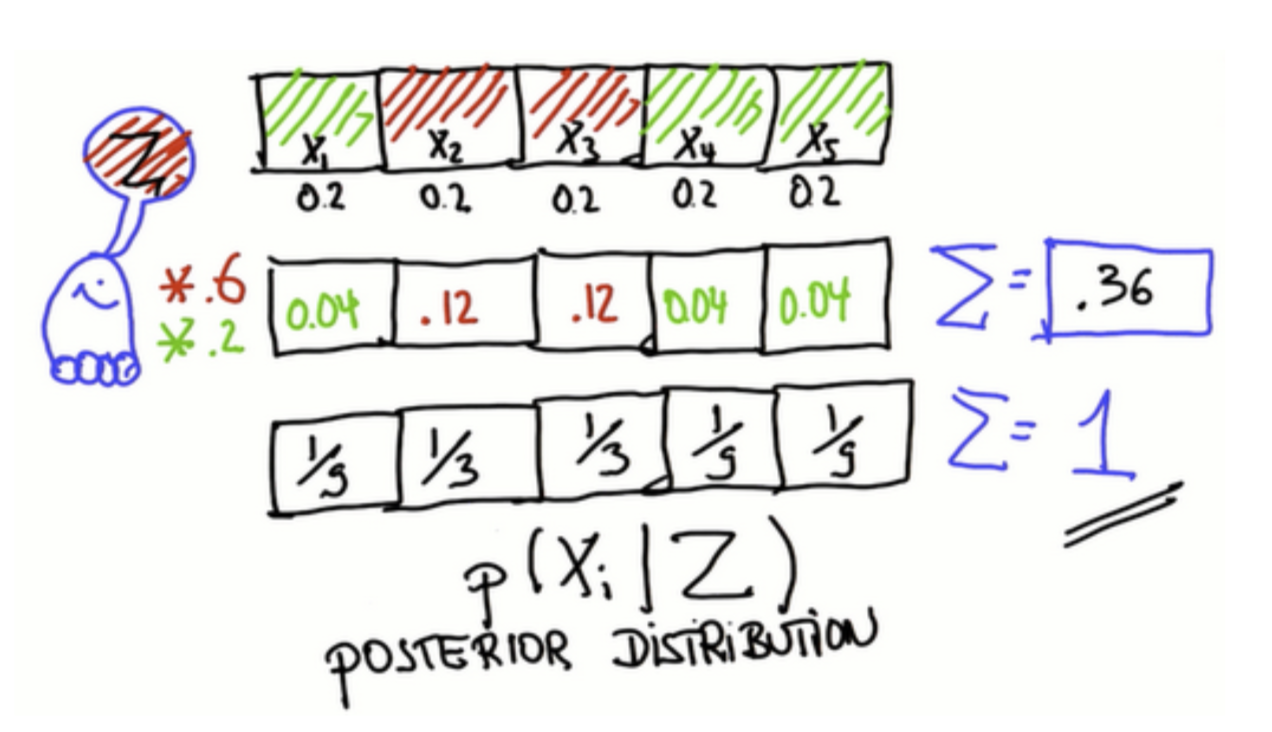 X₁ X₂ X₃ X₄ X₅
Z
0.2 0.2 0.2 0.2 0.2
*.6
*.2
0.04 .12 .12 0.04 0.04 Σ= .36
1/9 1/3 1/3 1/9 1/9 Σ= 1
p(Xᵢ|Z)
POSTERIOR DISTRIBUTION